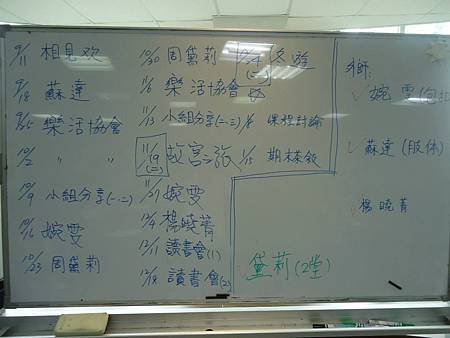 9/11 相見欢
9/18 蘇達
9/25 樂活協會
10/2 〃 〃
10/9 小組分享(一、二)
10/16 婉雯
10/23 周黛莉
10/30 周黛莉
11/6 樂活協會
11/13 小組分享(一、二)
11/19 (二) 故宮之旅
11/27 婉雯
12/4 楊曉菁
12/11 讀書會(1)
12/18 讀書會(2)
12/24 (二) 久遊
1/8 课程討論
1/15 期末茶敘
婉雯
蘇達(肢体)
楊曉菁
黛莉(2堂)